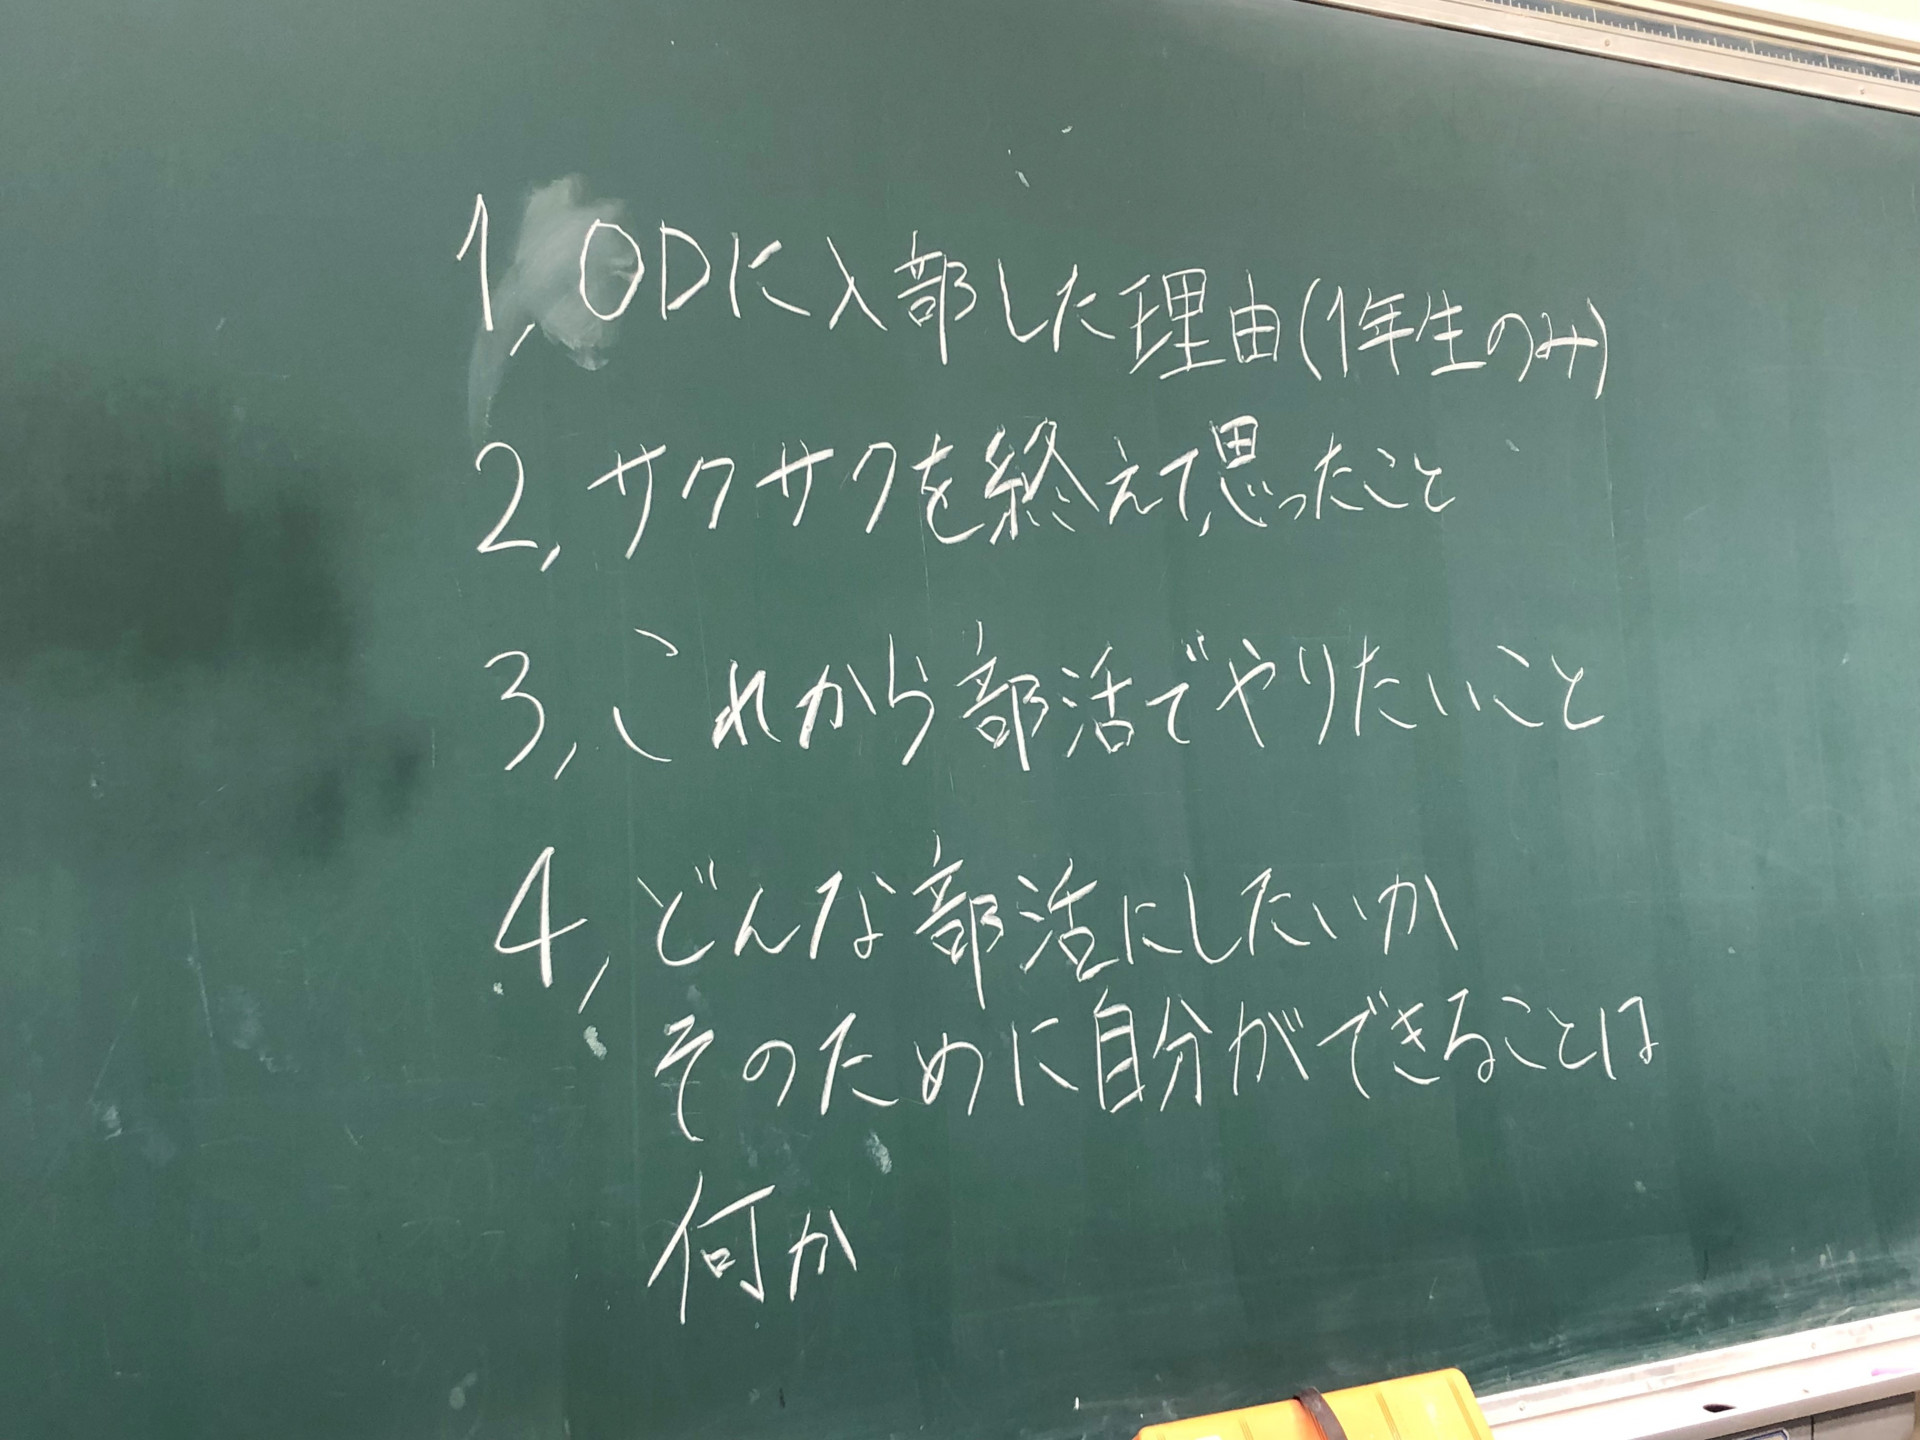 1, ODに入部した理由(1年生のみ)
2, サクサクを終えて、思ったこと
3, これから部活でやりたいこと
4, どんな部活にしたいか
そのために自分ができることは
何か